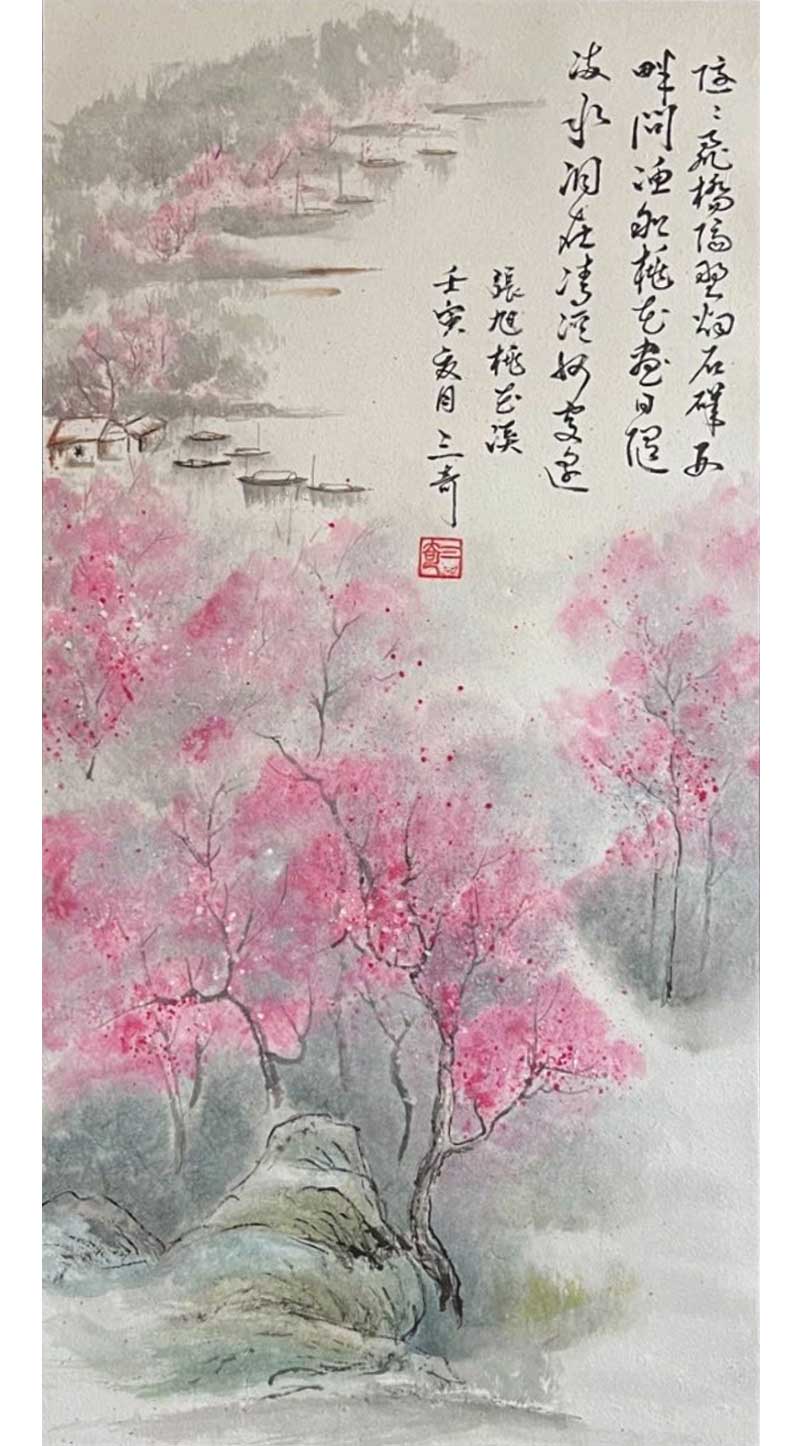 隱〻飛橋隔野烟石磯西
畔問漁船桃花盡日隨
流水洞在清溪何處邊
張旭桃花溪
壬寅夏月三奇
三奇